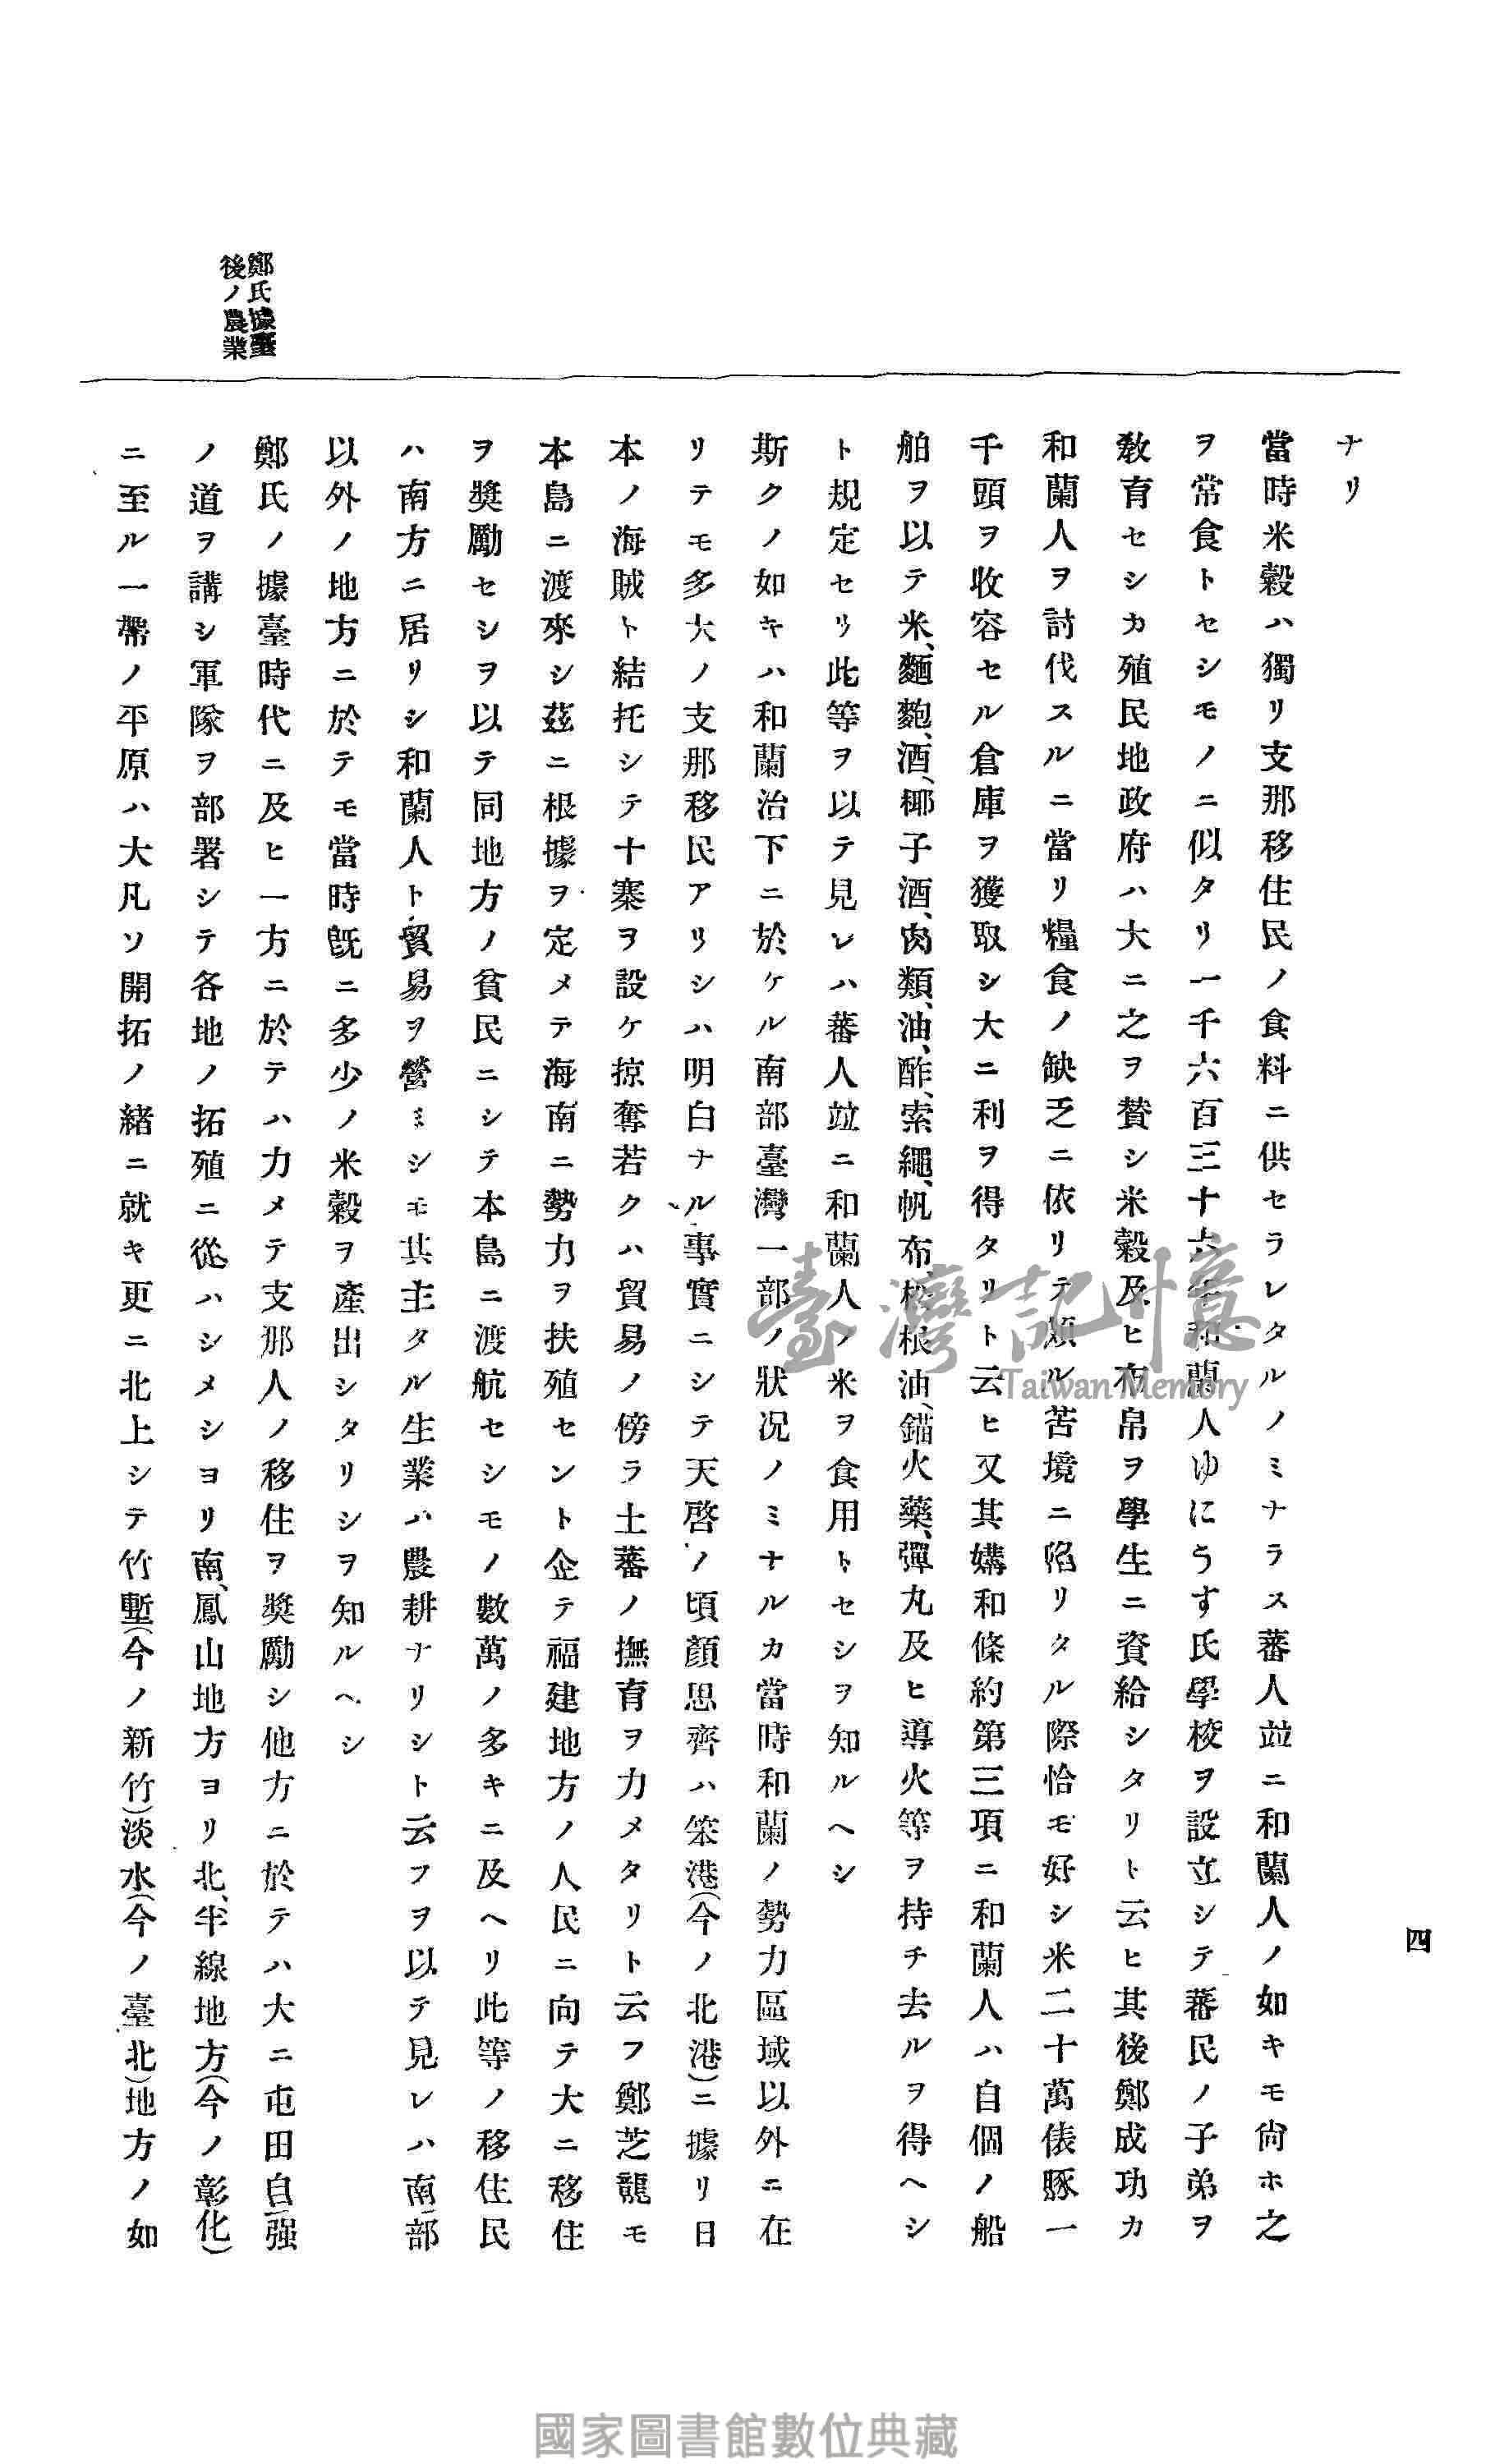 四
ナリ
當時米穀ハ獨リ支那移住民ノ食料ニ供セラレタルノミナラス蕃人竝ニ和蘭人ノ如キモ尙ホ之
ヲ常食トセシモノニ似タリ一千六百三十六年和蘭人ゆにうす氏學校ヲ設立シテ蕃民ノ子弟ヲ
敎育セシカ殖民地政府ハ大ニ之ヲ贊シ米穀及ヒ布帛ヲ學生ニ資給シタリト云ヒ其後鄭成功カ
和蘭人ヲ討伐スルニ當リ糧食ノ缺乏ニ依リテ頗ル苦境ニ陷リタル際恰モ好シ米二十萬俵豚一
千頭ヲ收容セル倉庫ヲ獲取シ大ニ利ヲ得タリト云ヒ又其媾和條約第三項ニ和蘭人ハ自個ノ船
舶ヲ以テ米、麵麭、酒、椰子酒、肉類、油、酢、索繩、帆布、松根油、錨火藥、彈丸及ヒ導火等ヲ持チ去ルヲ得ヘシ
ト規定セリ此等ヲ以テ見レハ蕃人竝ニ和蘭人ノ米ヲ食用トセシヲ知ルヘシ
斯クノ如キハ和蘭治下ニ於ケル南部臺灣一部ノ狀況ノミナルカ當時和蘭ノ勢力區域以外ニ在
リテモ多大ノ支那移民アリシハ明白ナル事實ニシテ天啓ノ頃顏思齊ハ笨港(今ノ北港)ニ據リ日
本ノ海賊ト結托シテ十寨ヲ設ケ掠奪若クハ貿易ノ傍ラ土蕃ノ撫育ヲ力メタリト云フ鄭芝龍モ
本島ニ渡來シ茲ニ根據ヲ定メテ海南ニ勢力ヲ扶殖セント企テ福建地方ノ人民ニ向テ大ニ移住
ヲ獎勵セシヲ以テ同地方ノ貧民ニシテ本島ニ渡航セシモノ數萬ノ多キニ及ヘリ此等ノ移住民
ハ南方ニ居リシ和蘭人ト貿易ヲ營ミシモ其主タル生業ハ農耕ナリシト云フヲ以テ見レハ南部
以外ノ地方ニ於テモ當時旣ニ多少ノ米穀ヲ產出シタリシヲ知ルヘシ
鄭氏據臺
後ノ農業
鄭氏ノ據臺時代ニ及ヒ一方ニ於テハ力メテ支那人ノ移住ヲ獎勵シ他方ニ於テハ大ニ屯田自强
ノ道ヲ講シ軍隊ヲ部署シテ各地ノ拓殖ニ從ハシメシヨリ南、鳳山地方ヨリ北、半線地方(今ノ彰化)
ニ至ル一帶ノ平原ハ大凡ソ開拓ノ緖ニ就キ更ニ北上シテ竹塹(今ノ新竹)淡水(今ノ臺北)地方ノ如
臺灣記憶
Taiwan Memory
國家圖書館數位典藏